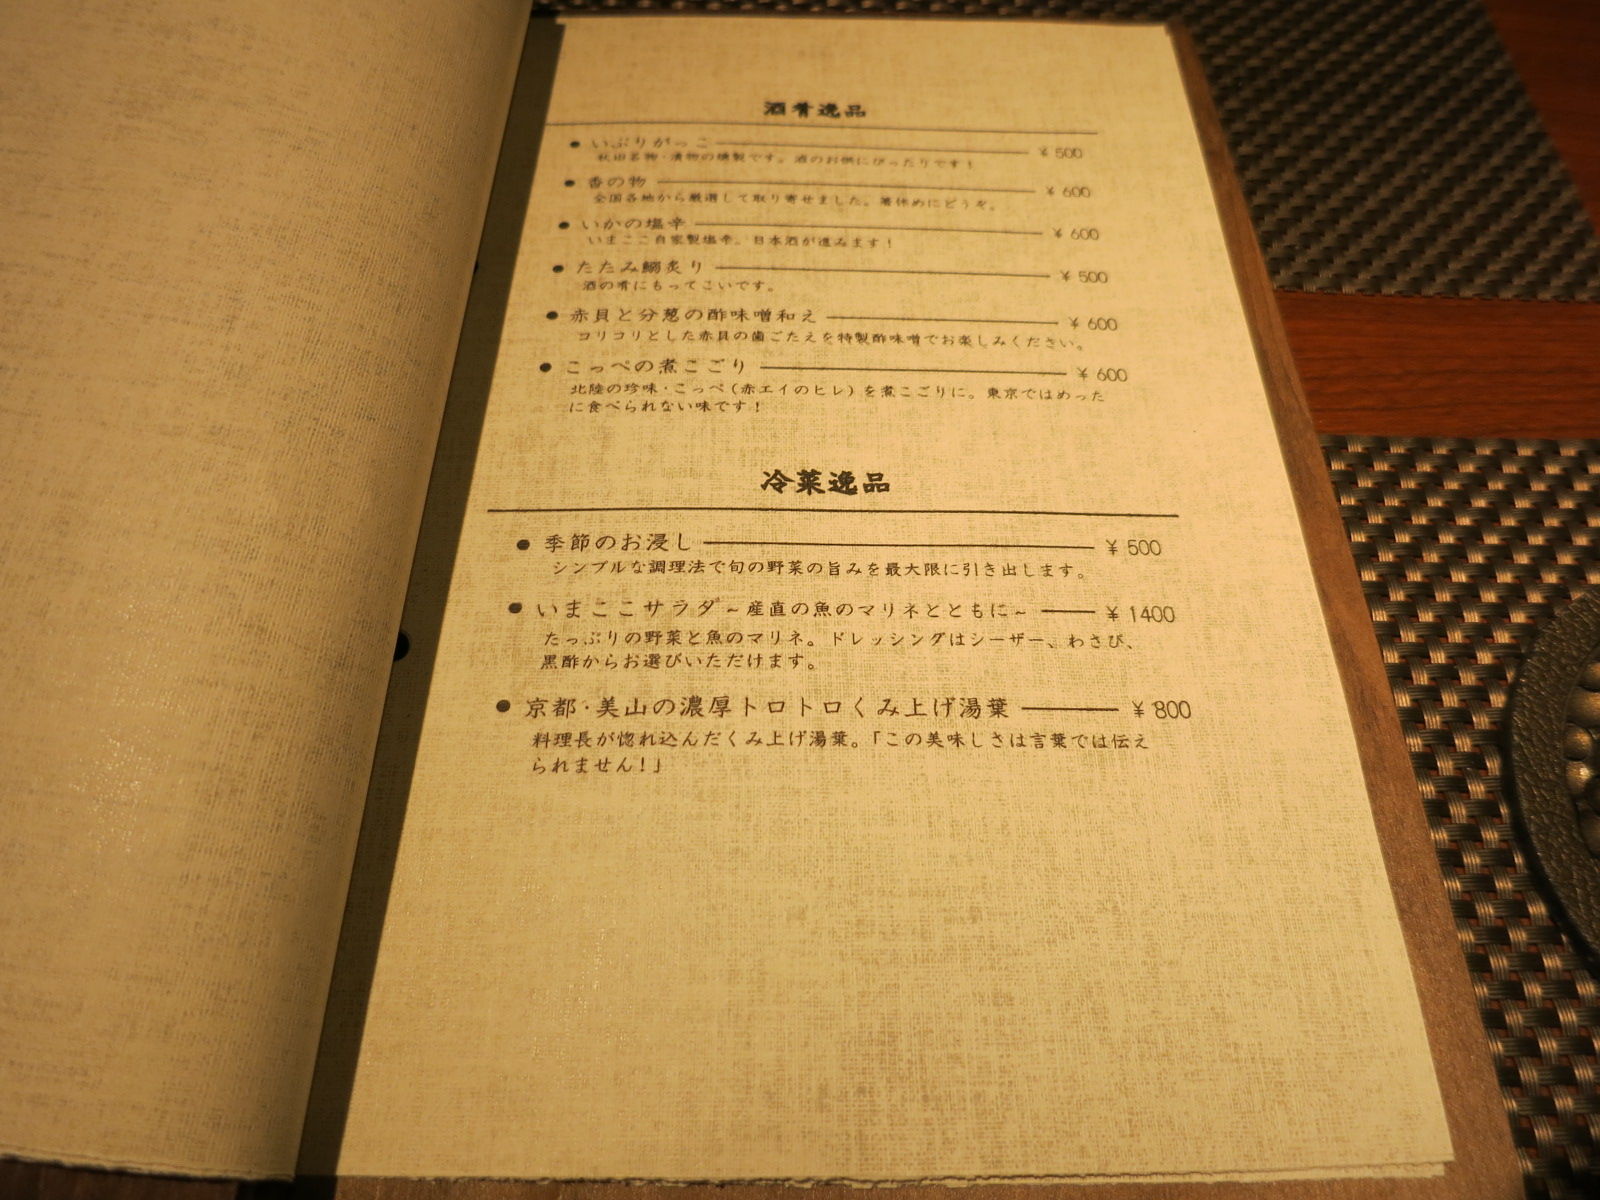 酒肴逸品
● いぶりがっこ ¥500
秋田名物・漬物の燻製です。酒のお供にぴったりです！
● 香の物 ¥600
全国各地から厳選して取り寄せました。箸休めにどうぞ。
● いかの塩辛 ¥600
いまここ自家製塩辛。日本酒が進みます！
● たたみ鰯炙り ¥500
酒の肴にもってこいです。
● 赤貝と分葱の酢味噌和え ¥600
コリコリとした赤貝の歯ごたえを特製酢味噌でお楽しみください。
● こっぺの煮こごり ¥600
北陸の珍味・こっぺ（赤エイのヒレ）を煮こごりに。東京ではめった
に食べられない味です！
冷菜逸品
● 季節のお浸し ¥500
シンプルな調理法で旬の野菜の旨みを最大限に引き出します。
● いまここサラダ～産直の魚のマリネとともに～ ¥1400
たっぷりの野菜と魚のマリネ。ドレッシングはシーザー、わさび、
黒酢からお選びいただけます。
● 京都・美山の濃厚トロトロくみ上げ湯葉 ¥800
料理長が惚れ込んだくみ上げ湯葉。「この美味しさは言葉では伝え
られません！」